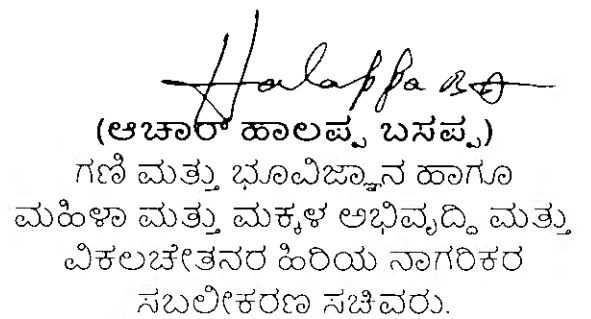 Halappa BA
(ಆಚಾರ್ ಹಾಲಪ್ಪ ಬಸಪ್ಪ)
ಗಣಿ ಮತ್ತು ಭೂವಿಜ್ಞಾನ ಹಾಗೂ
ಮಹಿಳಾ ಮತ್ತು ಮಕ್ಕಳ ಅಭಿವೃದ್ದಿ ಮತ್ತು
ವಿಕಲಚೇತನರ ಹಿರಿಯ ನಾಗರಿಕರ
ಸಬಲೀಕರಣ ಸಚಿವರು.